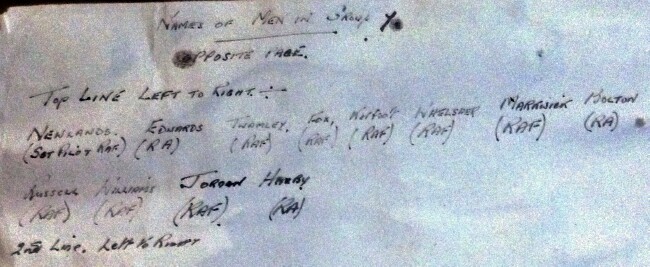 NAMES OF MEN IN GROUP
OPPOSITE PAGE.
TOP LINE LEFT TO RIGHT.
NEWLANDS. EDWARDS FOX, MARKWICK BOLTON
(SGT PILOT RAF) (RA) (RAF) (RAF) (RAF) (RAF) (RAF) (RA)
RUSSELL WILLIAMS JORDAN
(RAF) (RAF) (RAF) (RA)
2nd LINE. Left to Right